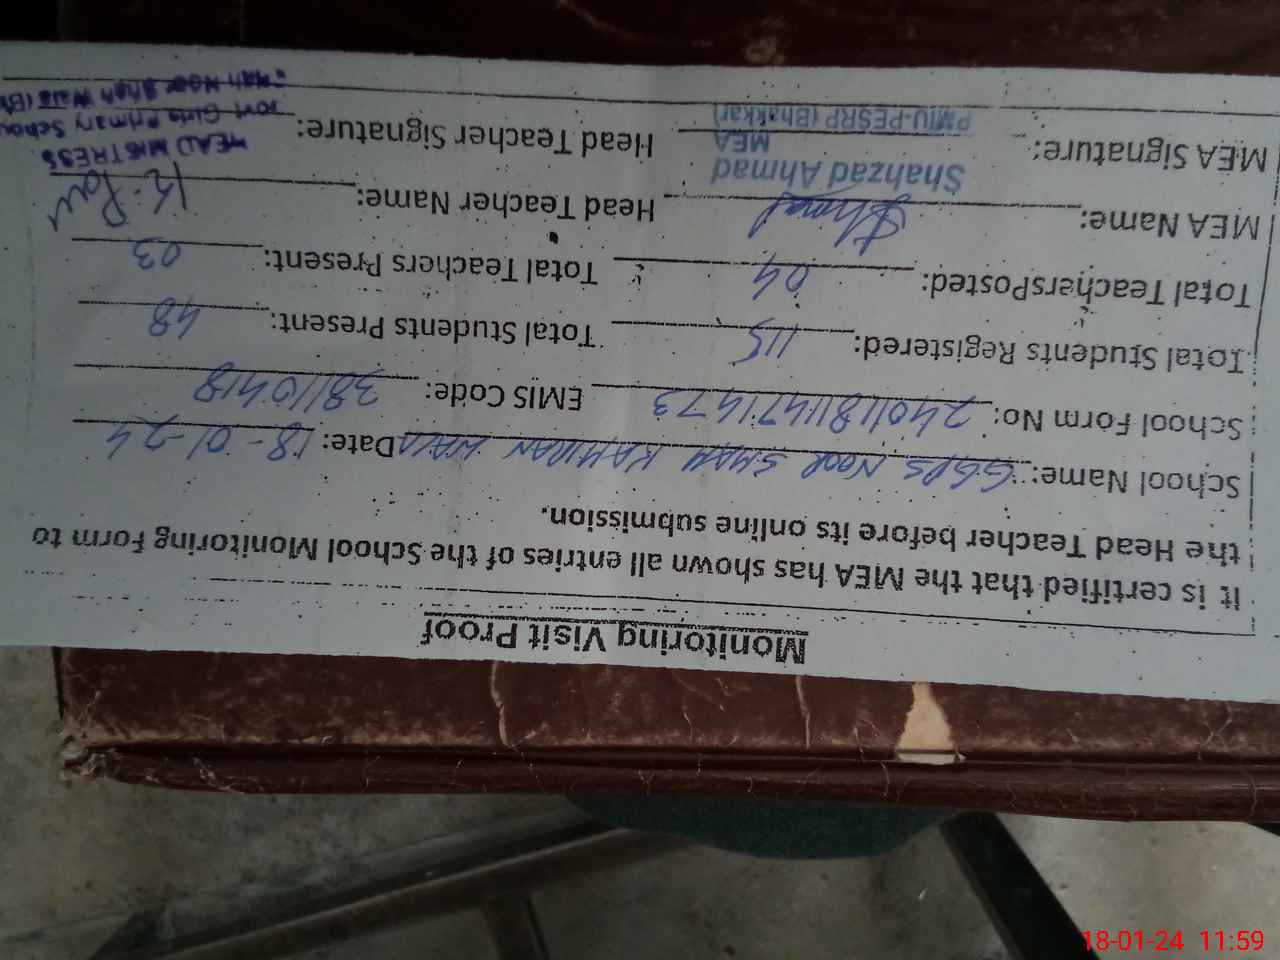 Monitoring Visit Proof
It is certified that the MEA has shown all entries of the School Monitoring Form to
the Head Teacher before its online submission.
School Name: GGPS NOOR SHAH KAMRAN WALA Date: 18-01-24
School Form No: 24011811471473 EMIS Code: 38110418
Total Students Registered: 115 Total Students Present: 48
Total TeachersPosted: 04 Total Teachers Present: 03
MEA Name: Head Teacher Name:
Shahzad Ahmad
MEA
PMIU-PESRP (Bhakkar)
MEA Signature: Head Teacher Signature:
HEAD MISTRESS
Govt Girls Primary School
Noor Shah Wala
18-01-24 11:59